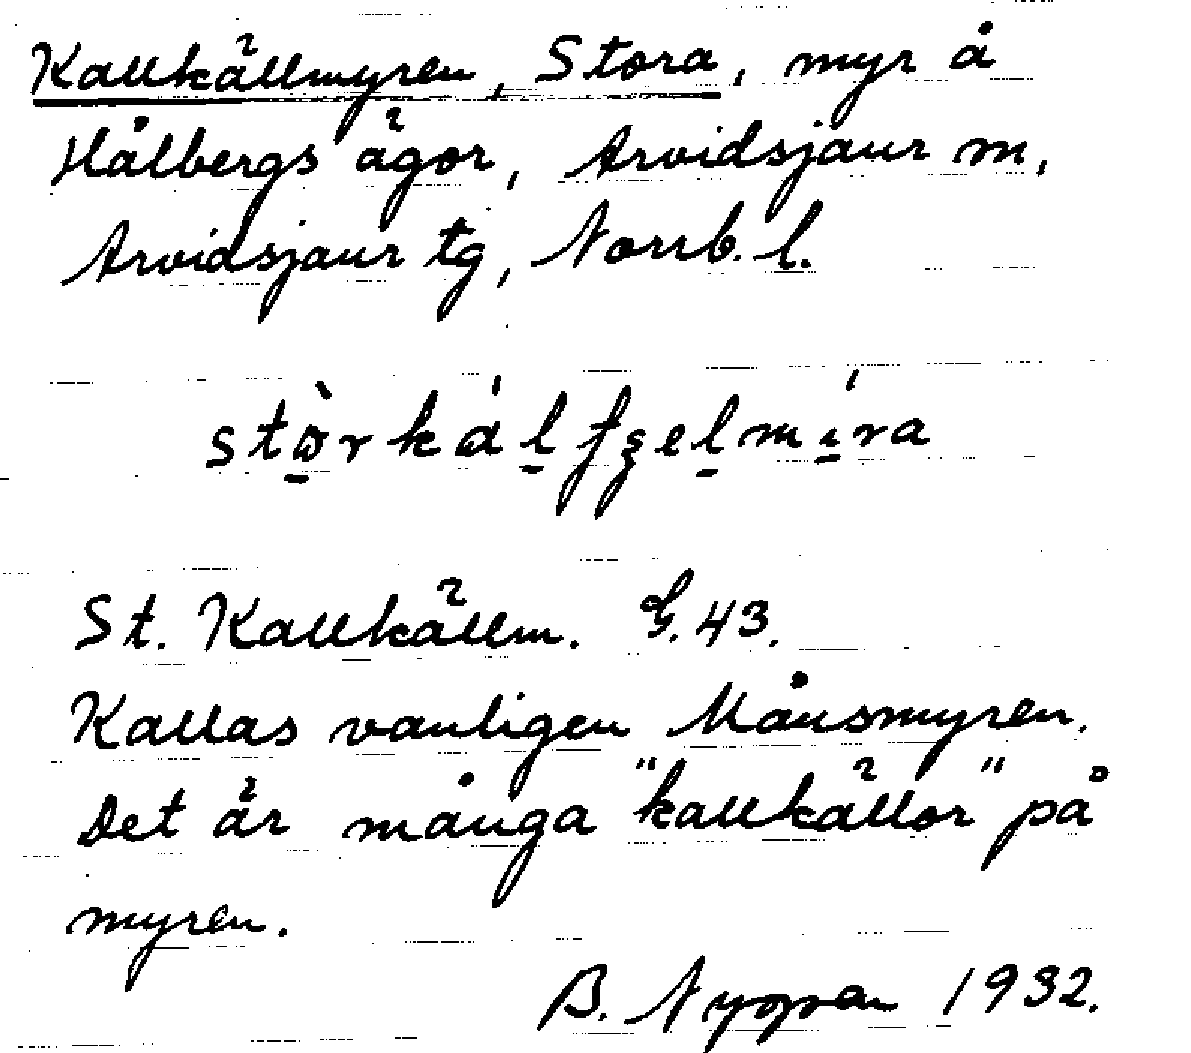 Kallkällmyren, Stora, myr å
Hålbergs ägor, Arvidsjaur sn,
Arvidsjaur tg, Norrb. l.
St. Kallkällm. G. 43.
Kallas vanligen Månsmyren.
Det är många "kallkällor" på
myren.
B. 1932.